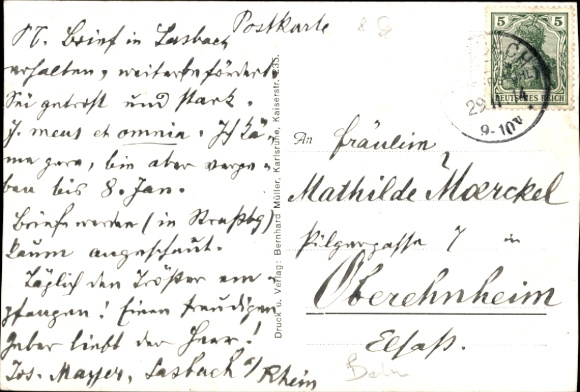 Postkarte
Pt. Brief in Sasbach
erhalten, weiterbefördert.
Sei getrost und stark.
J. meus et omnia. Ich kä-
me gern, bin aber verge-
ben bis 8. Jan.
Briefe werden (in Straßbg)
kaum angeschaut.
Täglich den Tröster em-
pfangen! Einen freudigen
Geber liebt der Herr!
Jos. Mayer, Sasbach a/
Rhein
Druck u. Verlag: Bernhard Müller, Karlsruhe, Kaiserstr. 235.
5 5
DEUTSCHES REICH
29
9-10V
An Fräulein
Mathilde Moerckel
Pilgergasse 7 in
Oberehnheim
Elsaß.